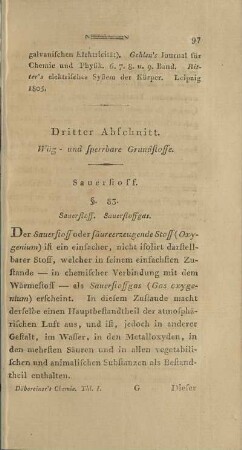 97
galvanischen Elektricität). Gehlen's Journal für
Chemie und Physik. 6, 7. 8. u. 9. Band. Rit-
ter's elektrisches System der Körper. Leipzig
1805.
Dritter Abschnitt.
Wäg- und sperrbare Grundstoffe.
Sauerstoff.
§. 83.
Sauerstoff. Sauerstoffgas.
Der Sauerstoff oder säureerzeugende Stoff (Oxy-
genium) ist ein einfacher, nicht isolirt darstell-
barer Stoff, welcher in seinem einfachsten Zu-
stande — in chemischer Verbindung mit dem
Wärmestoff — als Sauerstoffgas (Gas oxyge-
nium) erscheint. In diesem Zustande macht
derselbe einen Hauptbestandtheil der atmosphä-
rischen Luft aus, und ist, jedoch in anderer
Gestalt, im Wasser, in den Metalloxyden, in
den mehrsten Säuren und in allen vegetabili-
schen und animalischen Substanzen als Bestand-
theil enthalten.
Döbereiner's Chemie. Thl. I. G Dieser